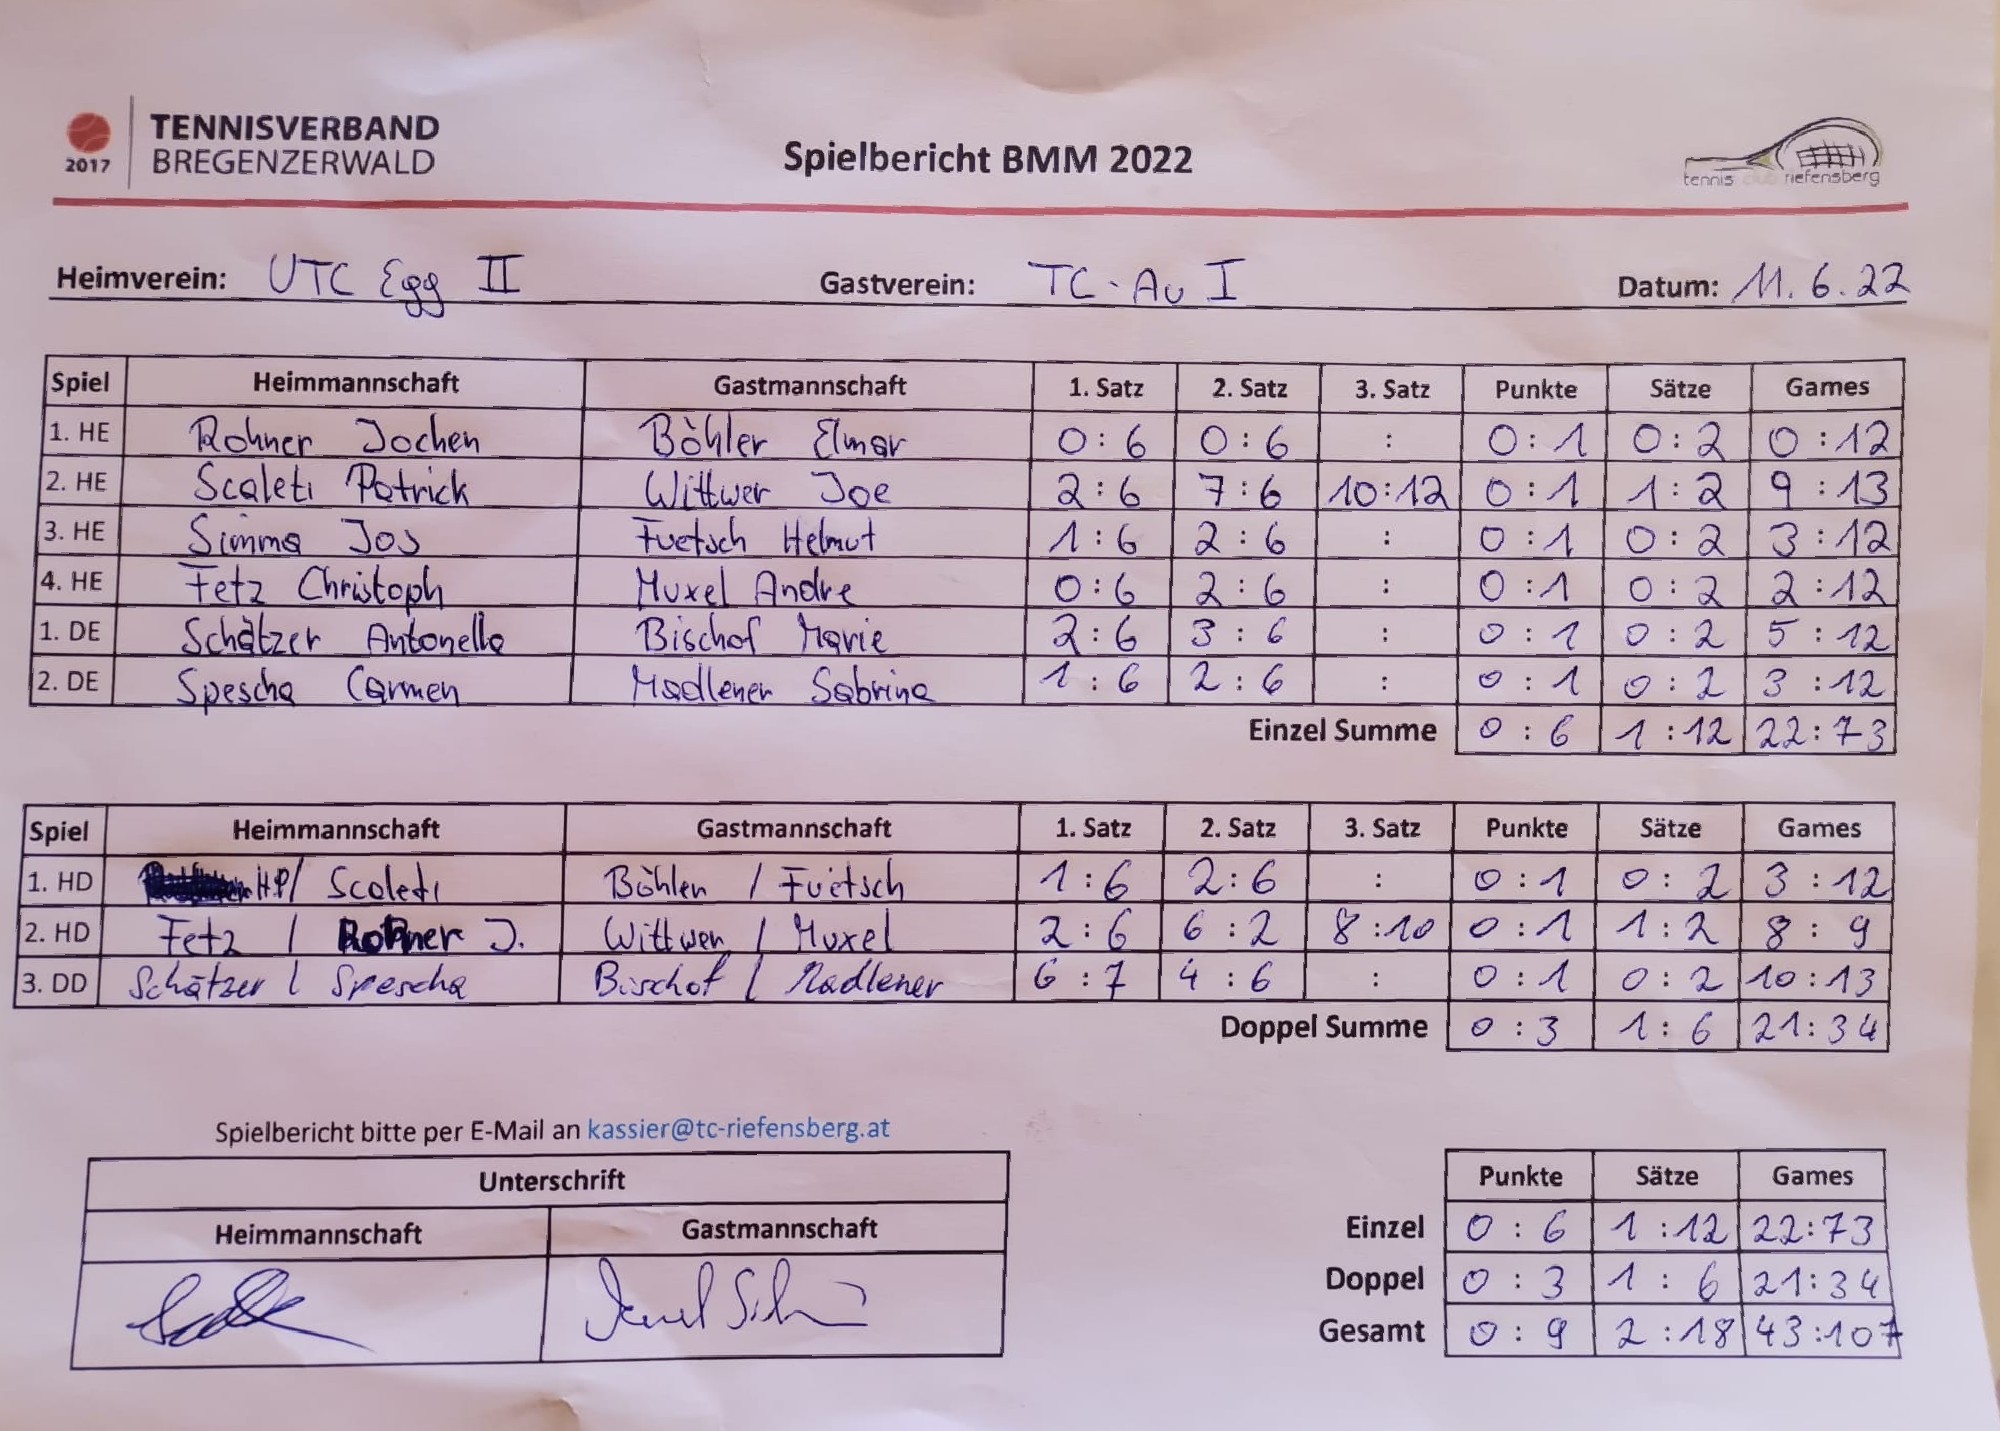 TENNISVERBAND
2017 BREGENZERWALD
Spielbericht BMM 2022
tennis club riefensberg
Heimverein: UTC Egg II Gastverein: TC-Au I Datum: 11.6.22
Spiel Heimmannschaft Gastmannschaft 1. Satz 2. Satz 3. Satz Punkte Sätze Games
1. HE Rohner Jochen Böhler Elmar 0:6 0:6 : 0:1 0:2 0:12
2. HE Scaleti Patrick Wittwer Joe 2:6 7:6 10:12 0:1 1:2 9:13
3. HE Simma Jos Fuetsch Helmut 1:6 2:6 : 0:1 0:2 3:12
4. HE Fetz Christoph Muxel Andre 0:6 2:6 : 0:1 0:2 2:12
1. DE Schätzer Antonella Bischof Marie 2:6 3:6 : 0:1 0:2 5:12
2. DE Spescha Carmen Madlener Sabrina 1:6 2:6 : 0:1 0:2 3:12
Einzel Summe 0:6 1:12 22:73
Spiel Heimmannschaft Gastmannschaft 1. Satz 2. Satz 3. Satz Punkte Sätze Games
1. HD H.P/ Scaleti Böhler / Fuetsch 1:6 2:6 : 0:1 0:2 3:12
2. HD Fetz / Rohner J. Wittwer / Muxel 2:6 6:2 8:10 0:1 1:2 8:9
3. DD Schätzer / Spescha Bischof / Madlener 6:7 4:6 : 0:1 0:2 10:13
Doppel Summe 0:3 1:6 21:34
Spielbericht bitte per E-Mail an kassier@tc-riefensberg.at
Unterschrift
Heimmannschaft Gastmannschaft
Punkte Sätze Games
Einzel 0:6 1:12 22:73
Doppel 0:3 1:6 21:34
Gesamt 0:9 2:18 43:107